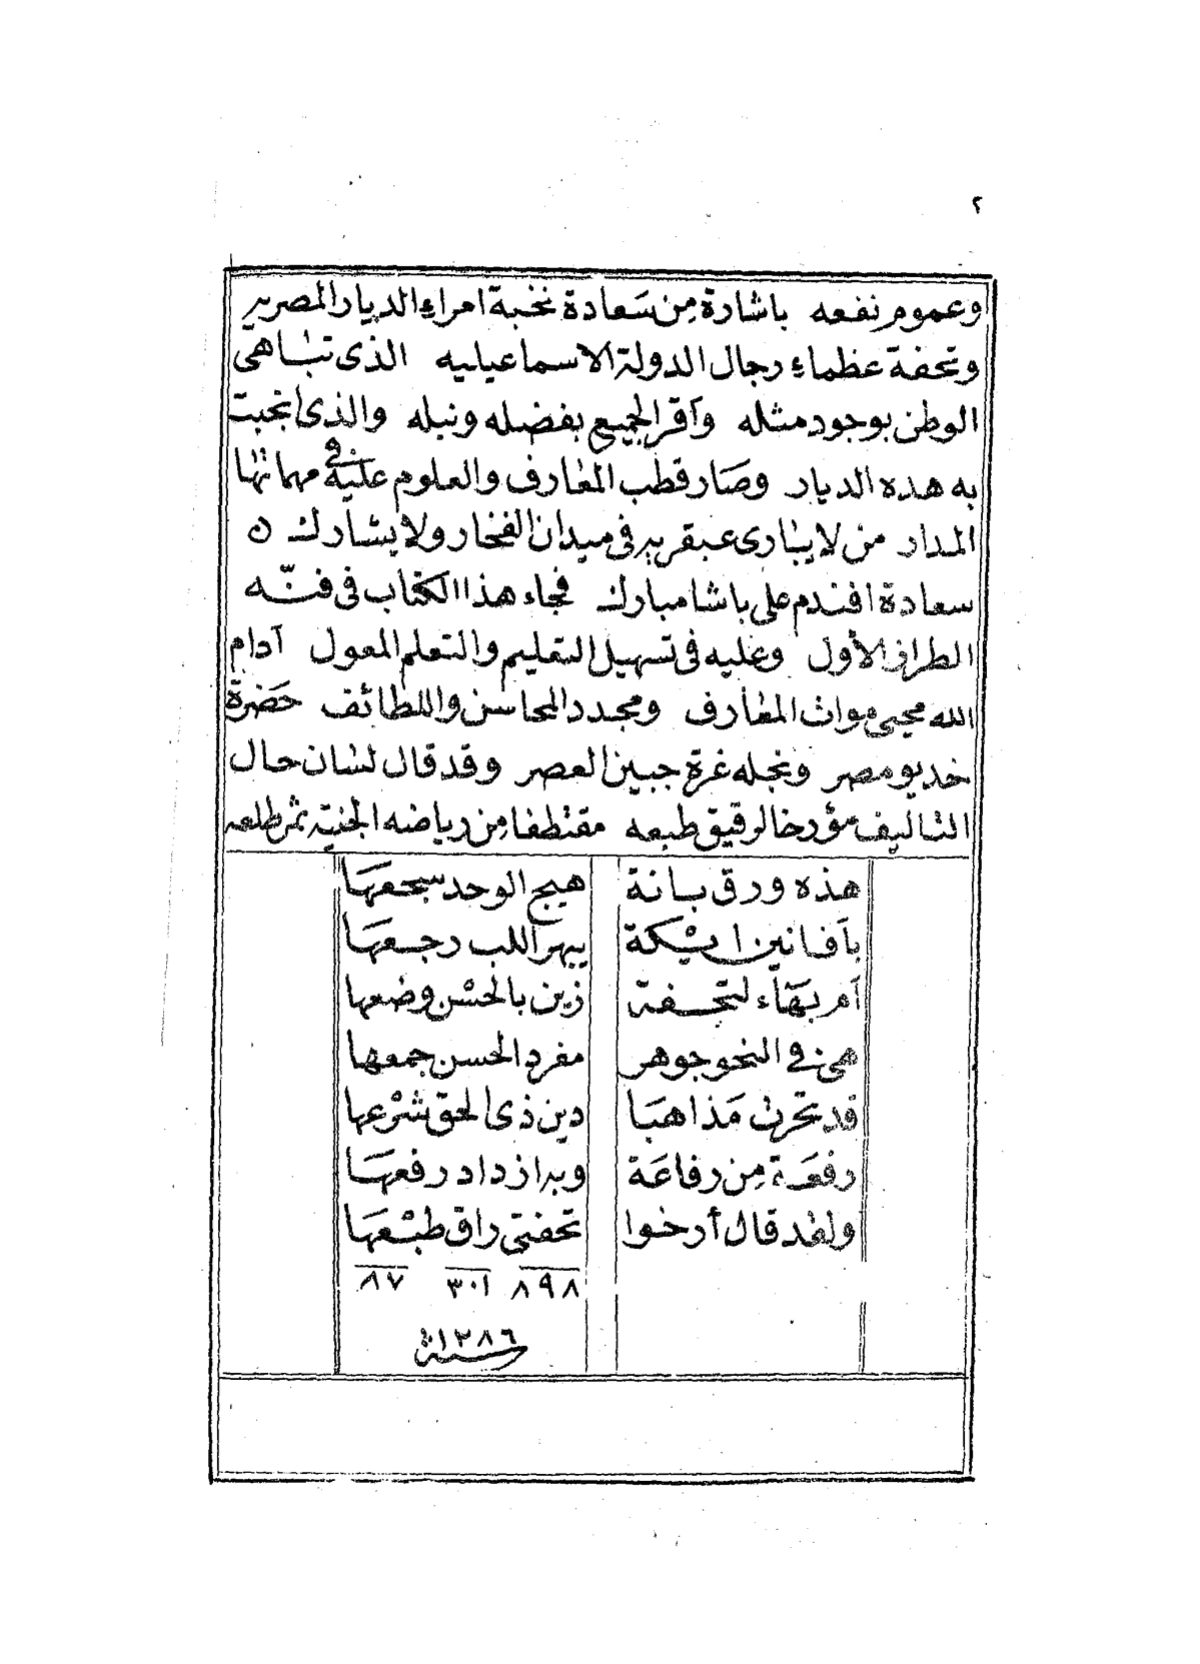 ٢
وعموم نفعه باشارة من سَعادة نخبة امراء الديار المصريه
وتحفة عظماء رجال الدولة الاسماعيليه الذى تباهى
الوطن بوجود مثله وآقر الجميع بفضله ونبله والذى انجبت
به هذه الديار وصَار قطب المعارف والعلوم عليه فى مهماتها
المدار من لا يبارى عبقريه فى ميدان الفخار ولا يشارك ه
سعادة افندم على باشا مبارك فجاء هذا الكتاب فى فنّه
الطراز الأول وعليه فى تسهيل التعليم والتعلم المعول آدام
الله محيى موات المعارف ومجدد المحاسن واللطائف حَضرة
خديو مصر ونجله غرة جبين العصر وقد قال لسَان حال
التاليف مؤرخا لرقيق طبعه مقتطفا من رياضه الجنية ثمر طلعه
هذه ورق بانة هيج الوجد سجعهَا
بآفانين ايكة يبهر اللب رجعهَا
آم بهَاء لتحفة زين بالحسْن وضعها
هى فى النحو جوهر مفرد الحسن جمعها
قد تحرت مَذاهبَا دين ذى الحق شرْعها
رفعَة من رفاعَة وبه ازداد رفعهَا
ولقد قال أرخوا تحفتى راق طبْعهَا
٨٩٨ ٣٠١ ٨٧
سنة ١٢٨٦